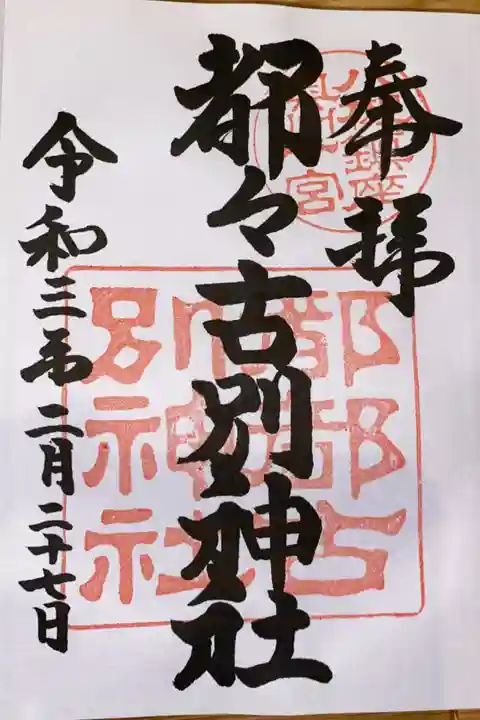 奉拝
都々古別神社
令和三年二月二十七日
都都古別神社